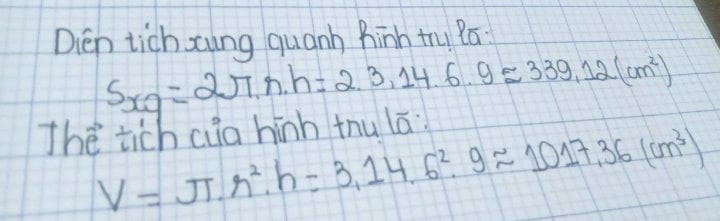 Diện tích xung quanh hình trụ là:
Sxq = 2π.r.h = 2.3,14.6.9 ≈ 339,12 (cm²)
Thể tích của hình trụ là:
V = π.r².h = 3,14.6².9 ≈ 1017,36 (cm³)